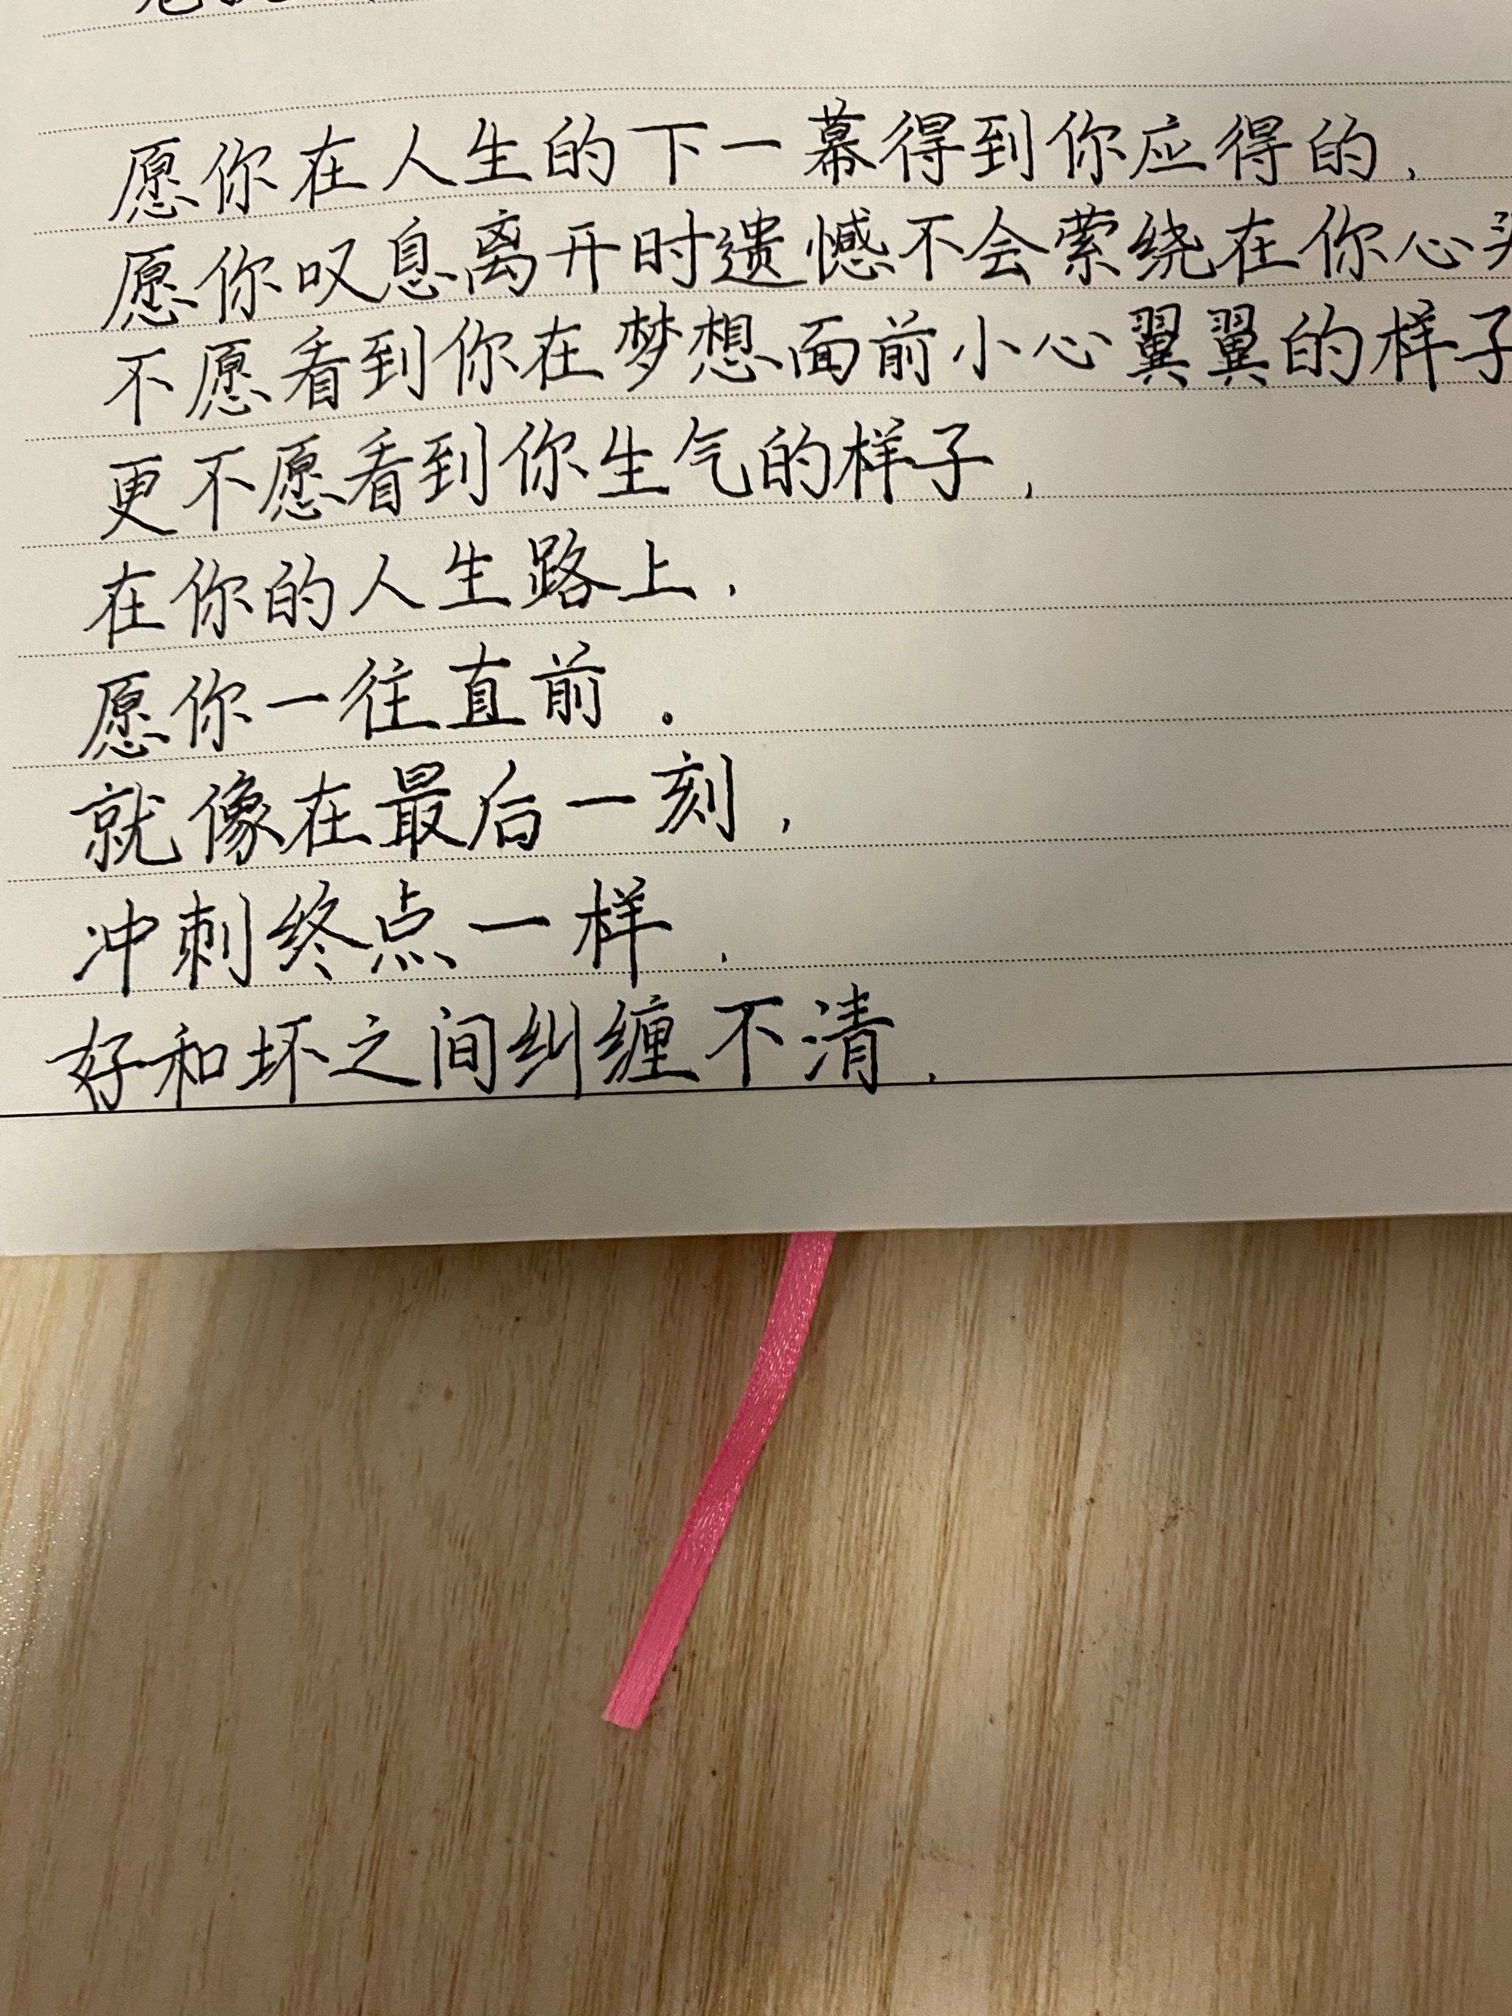 愿你在人生的下一幕得到你应得的，
愿你叹息离开时遗憾不会萦绕在你心头
不愿看到你在梦想面前小心翼翼的样子
更不愿看到你生气的样子，
在你的人生路上，
愿你一往直前．
就像在最后一刻，
冲刺终点一样，
好和坏之间纠缠不清，